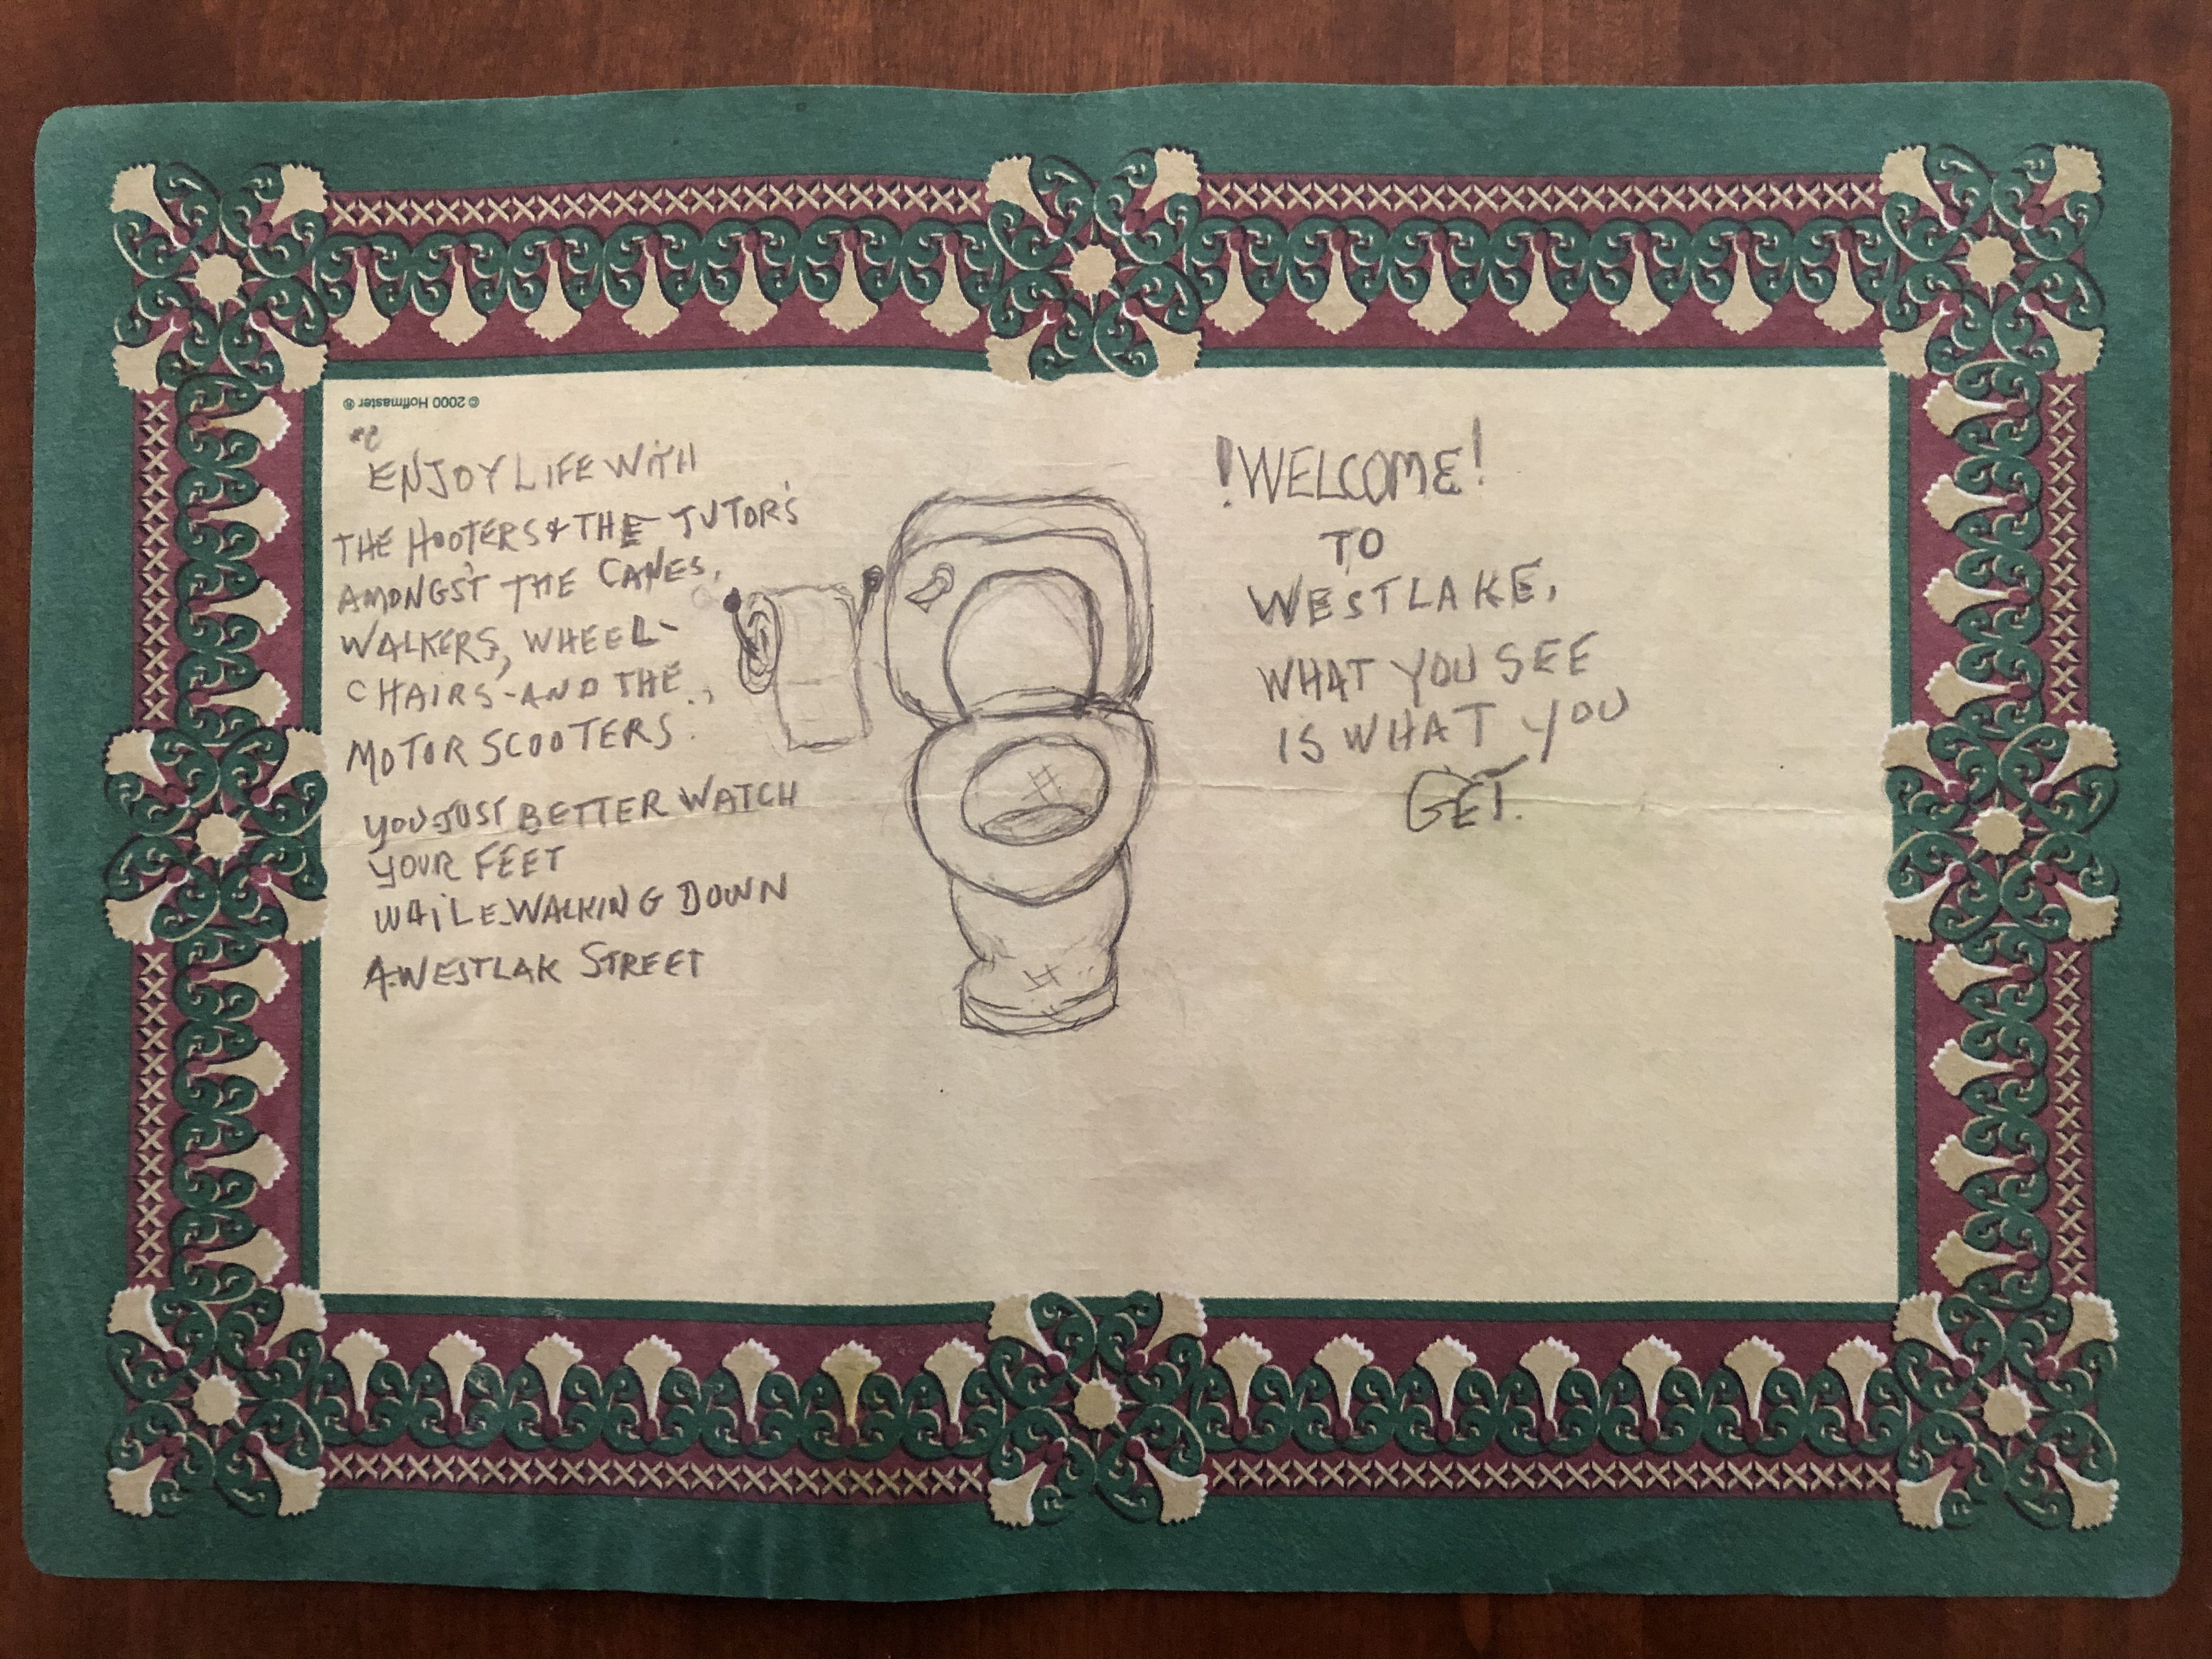 © 2000 Hoffmaster ®
ENJOY LIFE WITH
THE HOOTERS & THE TUTOR'S
AMONGST THE CANES,
WALKERS, WHEEL-
CHAIRS-AND THE..,
MOTOR SCOOTERS.
YOU JUST BETTER WATCH
YOUR FEET
WAILE WALKING DOWN
A-WESTLAK STREET
!WELCOME!
TO
WESTLAKE,
WHAT YOU SEE
IS WHAT YOU
GET.